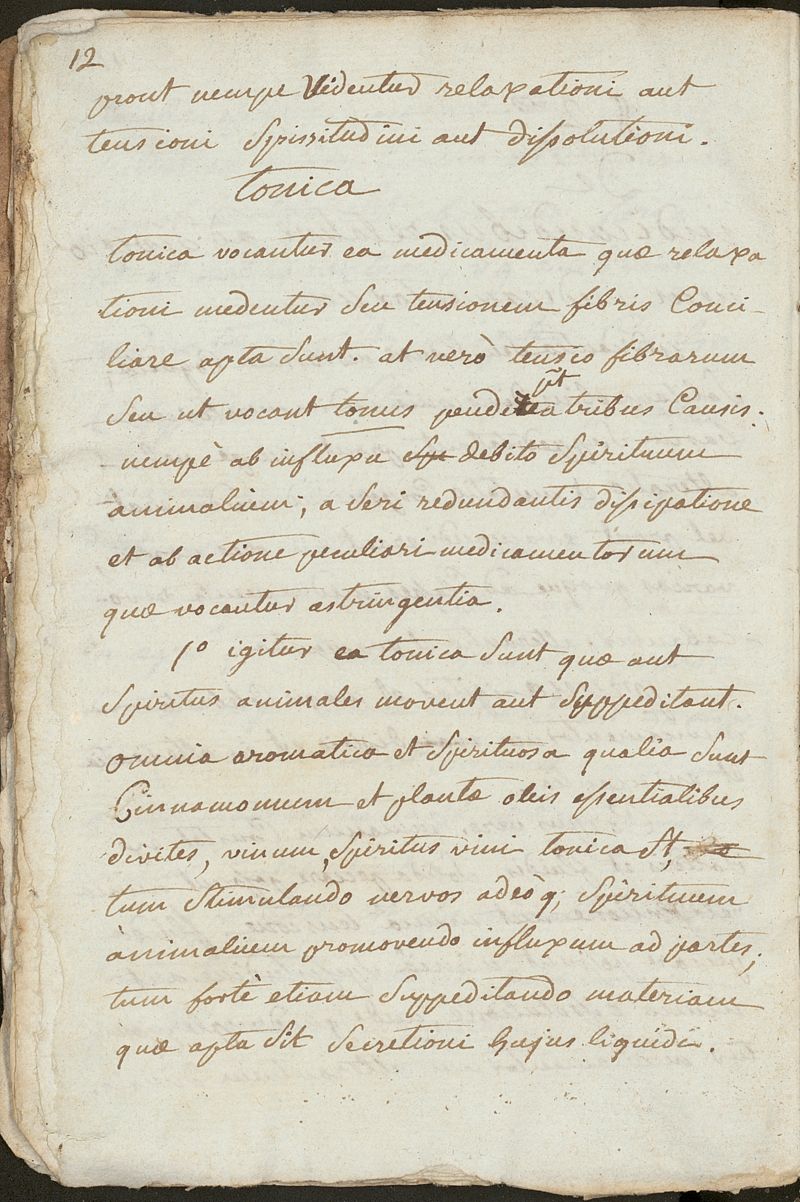 12
prout nempe videntur relaxationi aut
tensioni Spissitudini aut dissolutioni.
tonica
tonica vocantur ea medicamenta quæ relaxa
tioni medentur Seu tensionem fibris Conci-
liare apta Sunt. at verò tensio fibrarum
Seu ut vocant tonus pendet a tribus Causis.
nempè ab influxu debito Spirituum
animalium; a Seri redundantis dissipatione
et ab actione peculiari medicamentorum
quæ vocantur astringentia.
1º igitur ea tonica Sunt quæ aut
Spiritus animales movent aut Suppeditant.
omnia aromatica et Spirituosa qualia Sunt
Cinnamomum et plantæ oleis essentialibus
divites, vinum, Spiritus vini tonica St,
tum Stimulando nervos adeòq; Spirituum
animalium promovendo influxum ad partes;
tum fortè etiam Suppeditando materiam
quæ apta Sit Secretioni hujus liquidi.